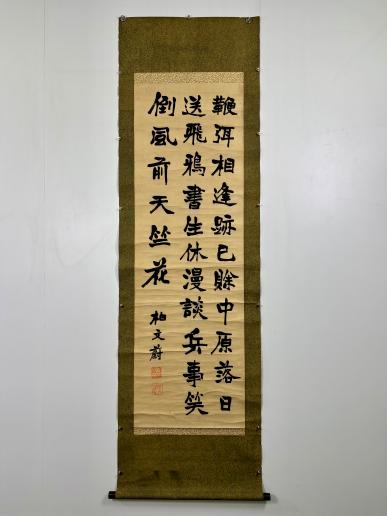 鞭弭相逢跡已賒中原落日
送飛鴉書生休漫談兵事笑
倒風前天竺花
柏文蔚